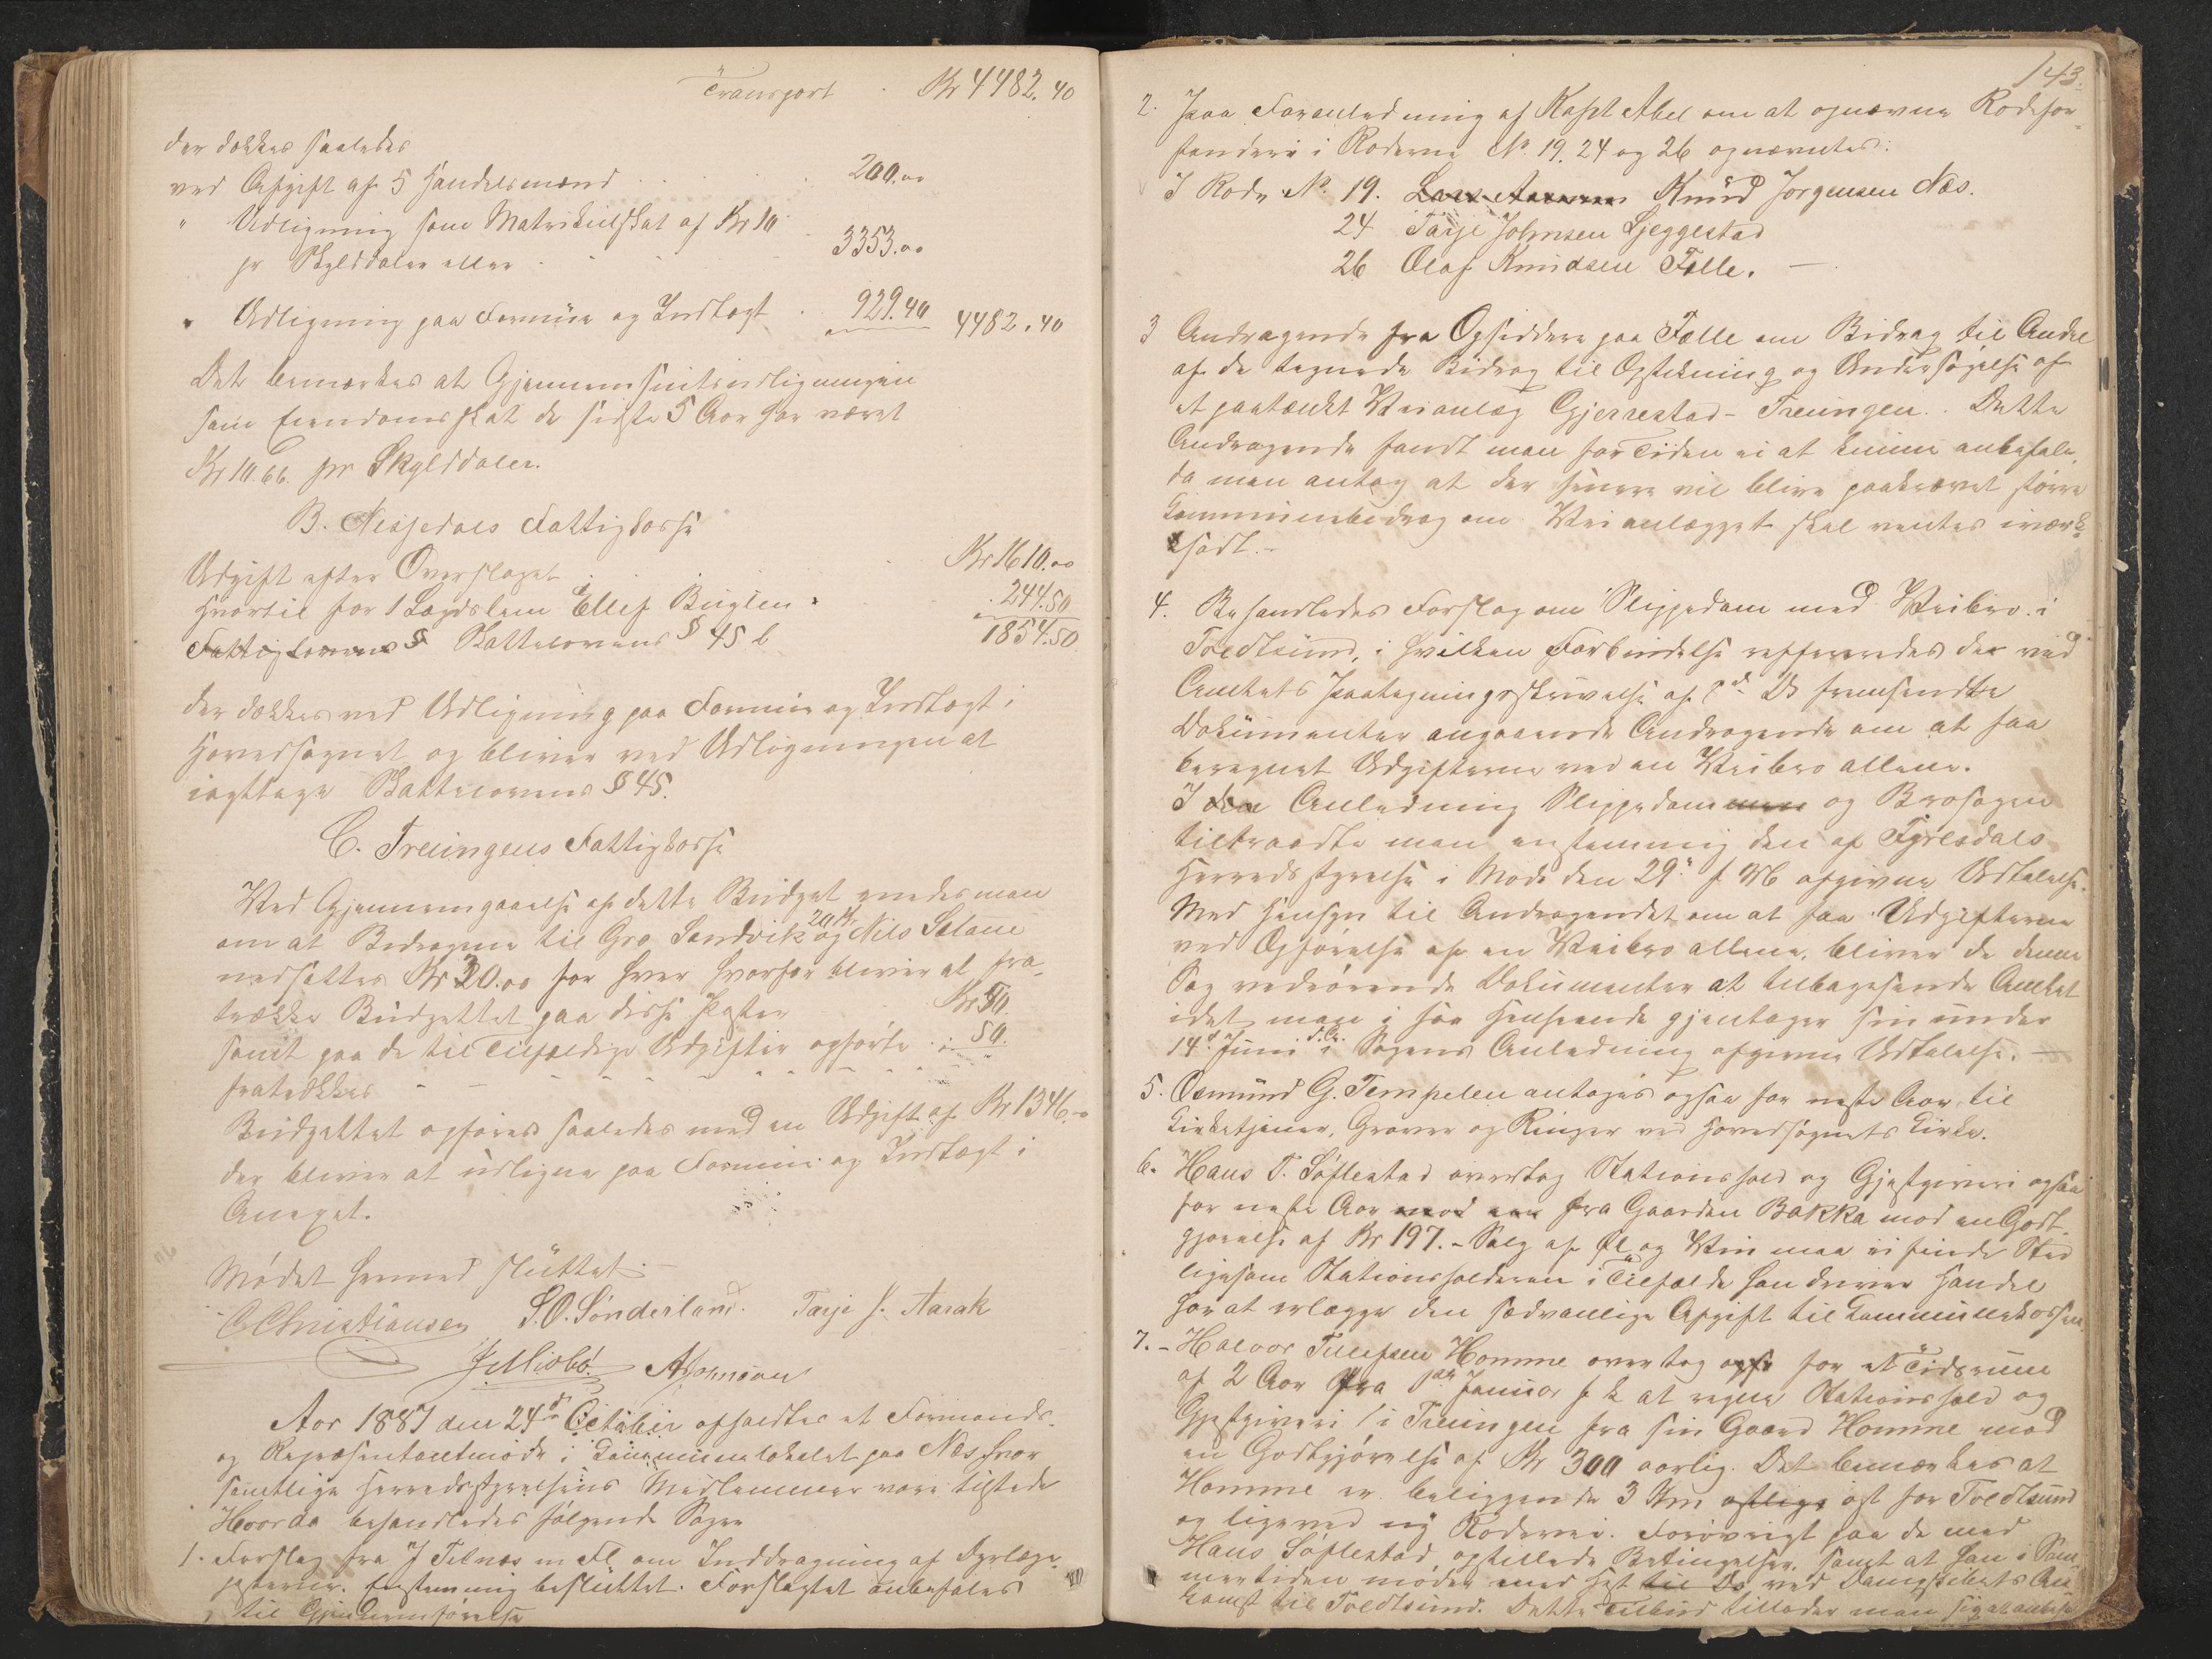 Transport . Kr 4482.40
der dækkes saaledes
ved Afgift af 5 Handelsmænd . . . 200.00
" Udligning som Matrikulskat af Kr 10
pr Skylddaler eller . . . . 3353.00
" Udligning paa Formue og Indtægt . 929.40 4482.40
Det bemærkes at Gjennemsnitsudligningen
som Eiendomsskat de sidste 5 Aar har været
Kr 10.66 pr Skylddaler.
B. Nissedals Fattigkasse
Udgift efter Overslaget . . . Kr 1610.00
Hvortil for 1 Lægdslem Ellef Buglen . 244.50
Fattiglovens § Skattelovens § 45 b 1854.50
der dækkes ved Udligning paa Formue og Indtægt i
Hovedsognet og bliver ved Udligningen at
iagttage Skattelovens § 45.
C. Treungens Fattigkasse
Ved Gjennemgaaelse af dette Budget enedes man
om at Bidragene til Gro Sandvik 20 Kr og Nils
nedsættes Kr 30.00 for hver hvorfor bliver at fra-
trække Budgettet paa disse Poster Kr 50.
samt paa de til Tilfældige Udgifter opførte . . 50.
fratrækkes
Budgettet opføres saaledes med en Udgift af Kr 1346.
der bliver at udligne paa Formue og Indtægt i
Annexet.
Mødet hermed sluttet.
C Christiansen S. O. Sønderland. Tarje J. Aarak
J. Misbø A Johnson
Aar 1887 den 24de October afholdtes et Formands-
og Repræsentantmøde i Communelokalet paa Næs hvor
samtlige Herredsstyrelsens Medlemmer vare tilstede
Hvorda behandledes følgende Sager
1. Forslag fra J Tilnæs m Fl. om Inddragning af Dyrlæge-
posterne. Enstemmig besluttet. Forslaget anbefales
til Gjennemførelse
143.
2. Paa Foranledning af Kapt Abel om at opnævne Rodefor-
standere i Roderne No. 19, 24 og 26 opnævntes:
I Rode No. 19. Knud Jørgensen Næs.
24 Tarje Johnsen Ljeggestad
26 Olaf Knudsen Fælle.
3 Andragende fra Opsiddere paa Fælle om Bidrag til Andel
af de tegnede Bidrag til Opstikning og Undersøgelse af
et paatænkt Veianlæg Gjerrestad - Treungen. Dette
Andragende fandt man for Tiden ei at kunne anbefale,
da man antog at der senere vil blive paakrævet større
Communebidrag om Veianlægget skal ventes iværk-
sadt.
4. Behandledes Forslag om Slippedam med Veibro i
Tveitsund, i hvilken Forbindelse refereredes der ved
Amtets Paategningsskrivelse af 8de Ds fremsendte
Dokumenter angaaende Andragende om at faa
beregnet Udgifterne ved en Veibro allene.
I den Anledning Slippedammen og Brosagen
tiltraadte man enstemmig den af Fyresdals
Herredsstyrelse i Møde den 29de f M afgivne Udtalelse.
Med Hensyn til Andragendet om at faa Udgifterne
ved Opførelse af en Veibro allene, bliver de denne
Sag vedrørende Dokumenter at tilbagesende Amtet
idet man i saa Henseende gjentager sin under
14de Juni d.A. i Sagens Anledning afgivne Udtalelse.
5. Osmund G. Tempelen antages ogsaa for neste Aar til
Kirketjener, Graver og Ringer ved Hovedsognets Kirke.
6. Hans T. Søftestad overtog Stationshold og Gjæstgiveri ogsaa
for neste Aar mod en fra Gaarden Bakka mod en Godt-
gjørelse af Kr 197. - Salg af Øl og Vin maa ei finde Sted
ligesom Stationsholderen i Tilfælde han driver Handel
har at erlægge den sædvanlige Afgift til Communekassen.
7. - Halvor Tellefsen Homme overtog ogsa for et Tidsrum
af 2 Aar fra 1ste Januar f k at regne Stationshold og
Gjæstgiveri i Treungen fra sin Gaard Homme mod
en Godtgjørelse af Kr 300 aarlig. Det bemærkes at
Homme er beliggende 3 Km østlige øst for Tveitsund
og ligeved ny Rodevei. Forøvrigt paa de med
Hans Søftestad opstillede Betingelser, samt at han i Som-
mertiden møder med Hest til Ds ved Dampskibets An-
komst til Tveitsund. Dette Tilbud tillader man sig at anbefale